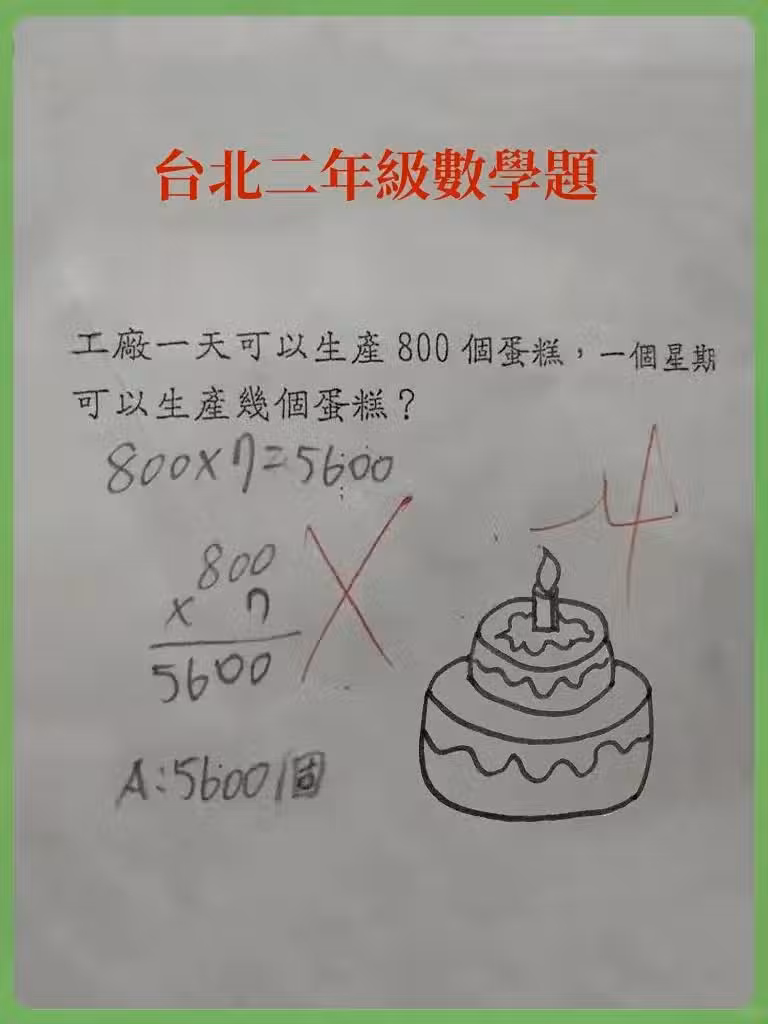 台北二年級數學題
工廠一天可以生產 800 個蛋糕，一個星期
可以生產幾個蛋糕？
800×7=5600
-4
800
× 7
5600
A:5600個